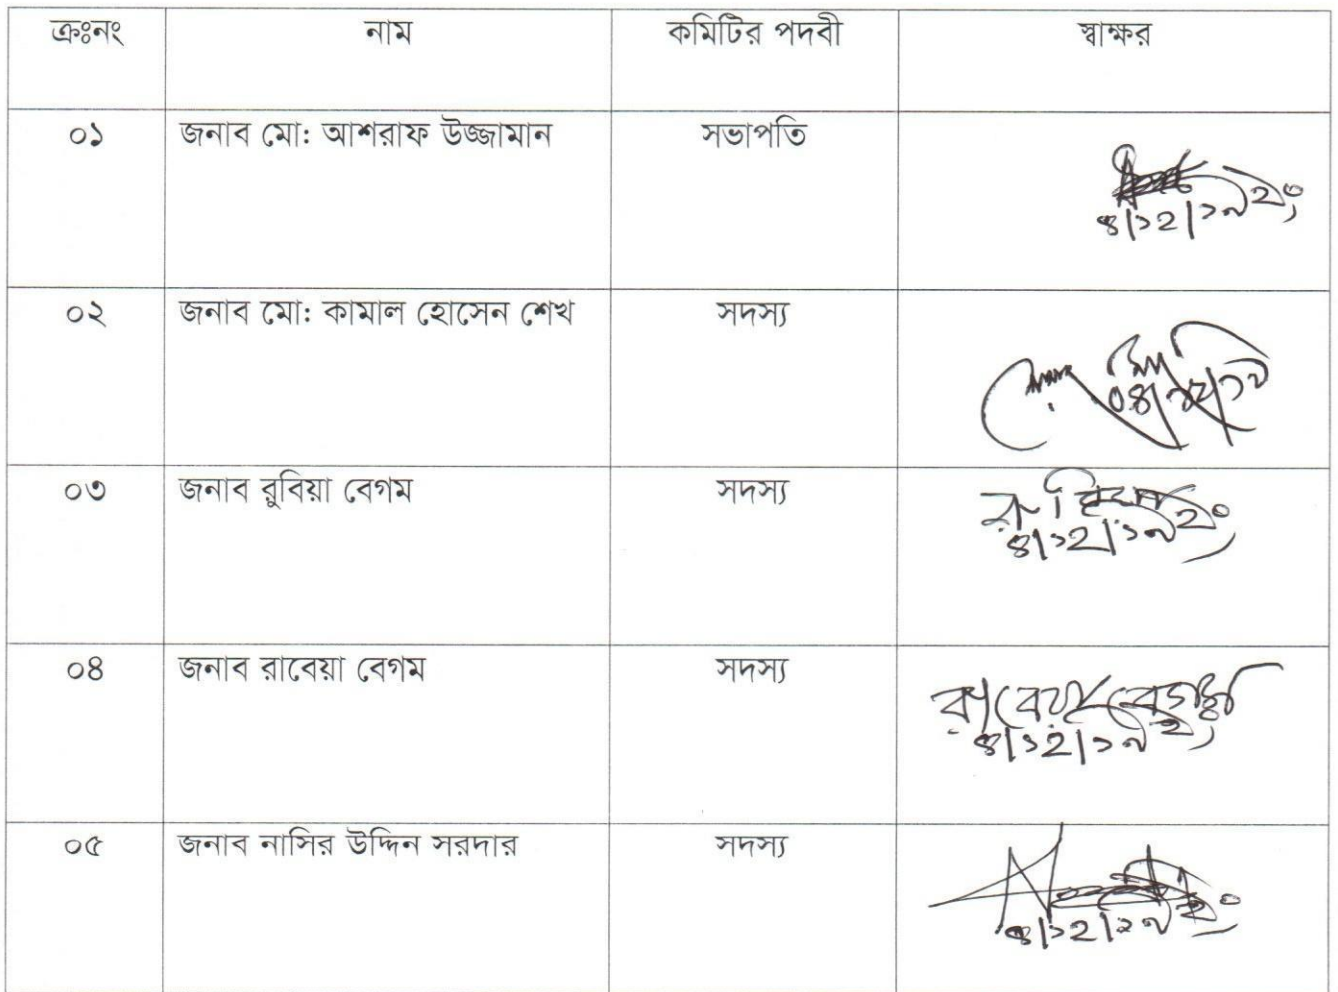 ক্রঃনং নাম কমিটির পদবী স্বাক্ষর
০১ জনাব মো: আশরাফ উজ্জামান সভাপতি
৪/১২/১৯ইং
০২ জনাব মো: কামাল হোসেন শেখ সদস্য
০৪/১২/১৯
০৩ জনাব রুবিয়া বেগম সদস্য
৪/১২/১৯ইং
০৪ জনাব রাবেয়া বেগম সদস্য
রাবেয়া বেগম
৪/১২/১৯ইং
০৫ জনাব নাসির উদ্দিন সরদার সদস্য
৪/১২/১৯ইং